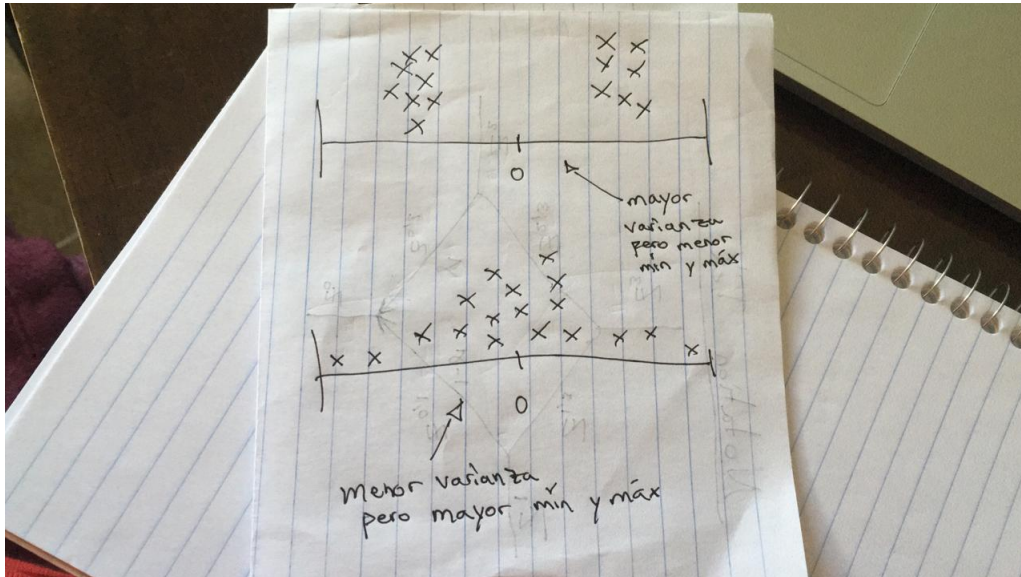 0
mayor
varianza
pero menor
mín y máx
0
menor varianza
pero mayor mín y máx